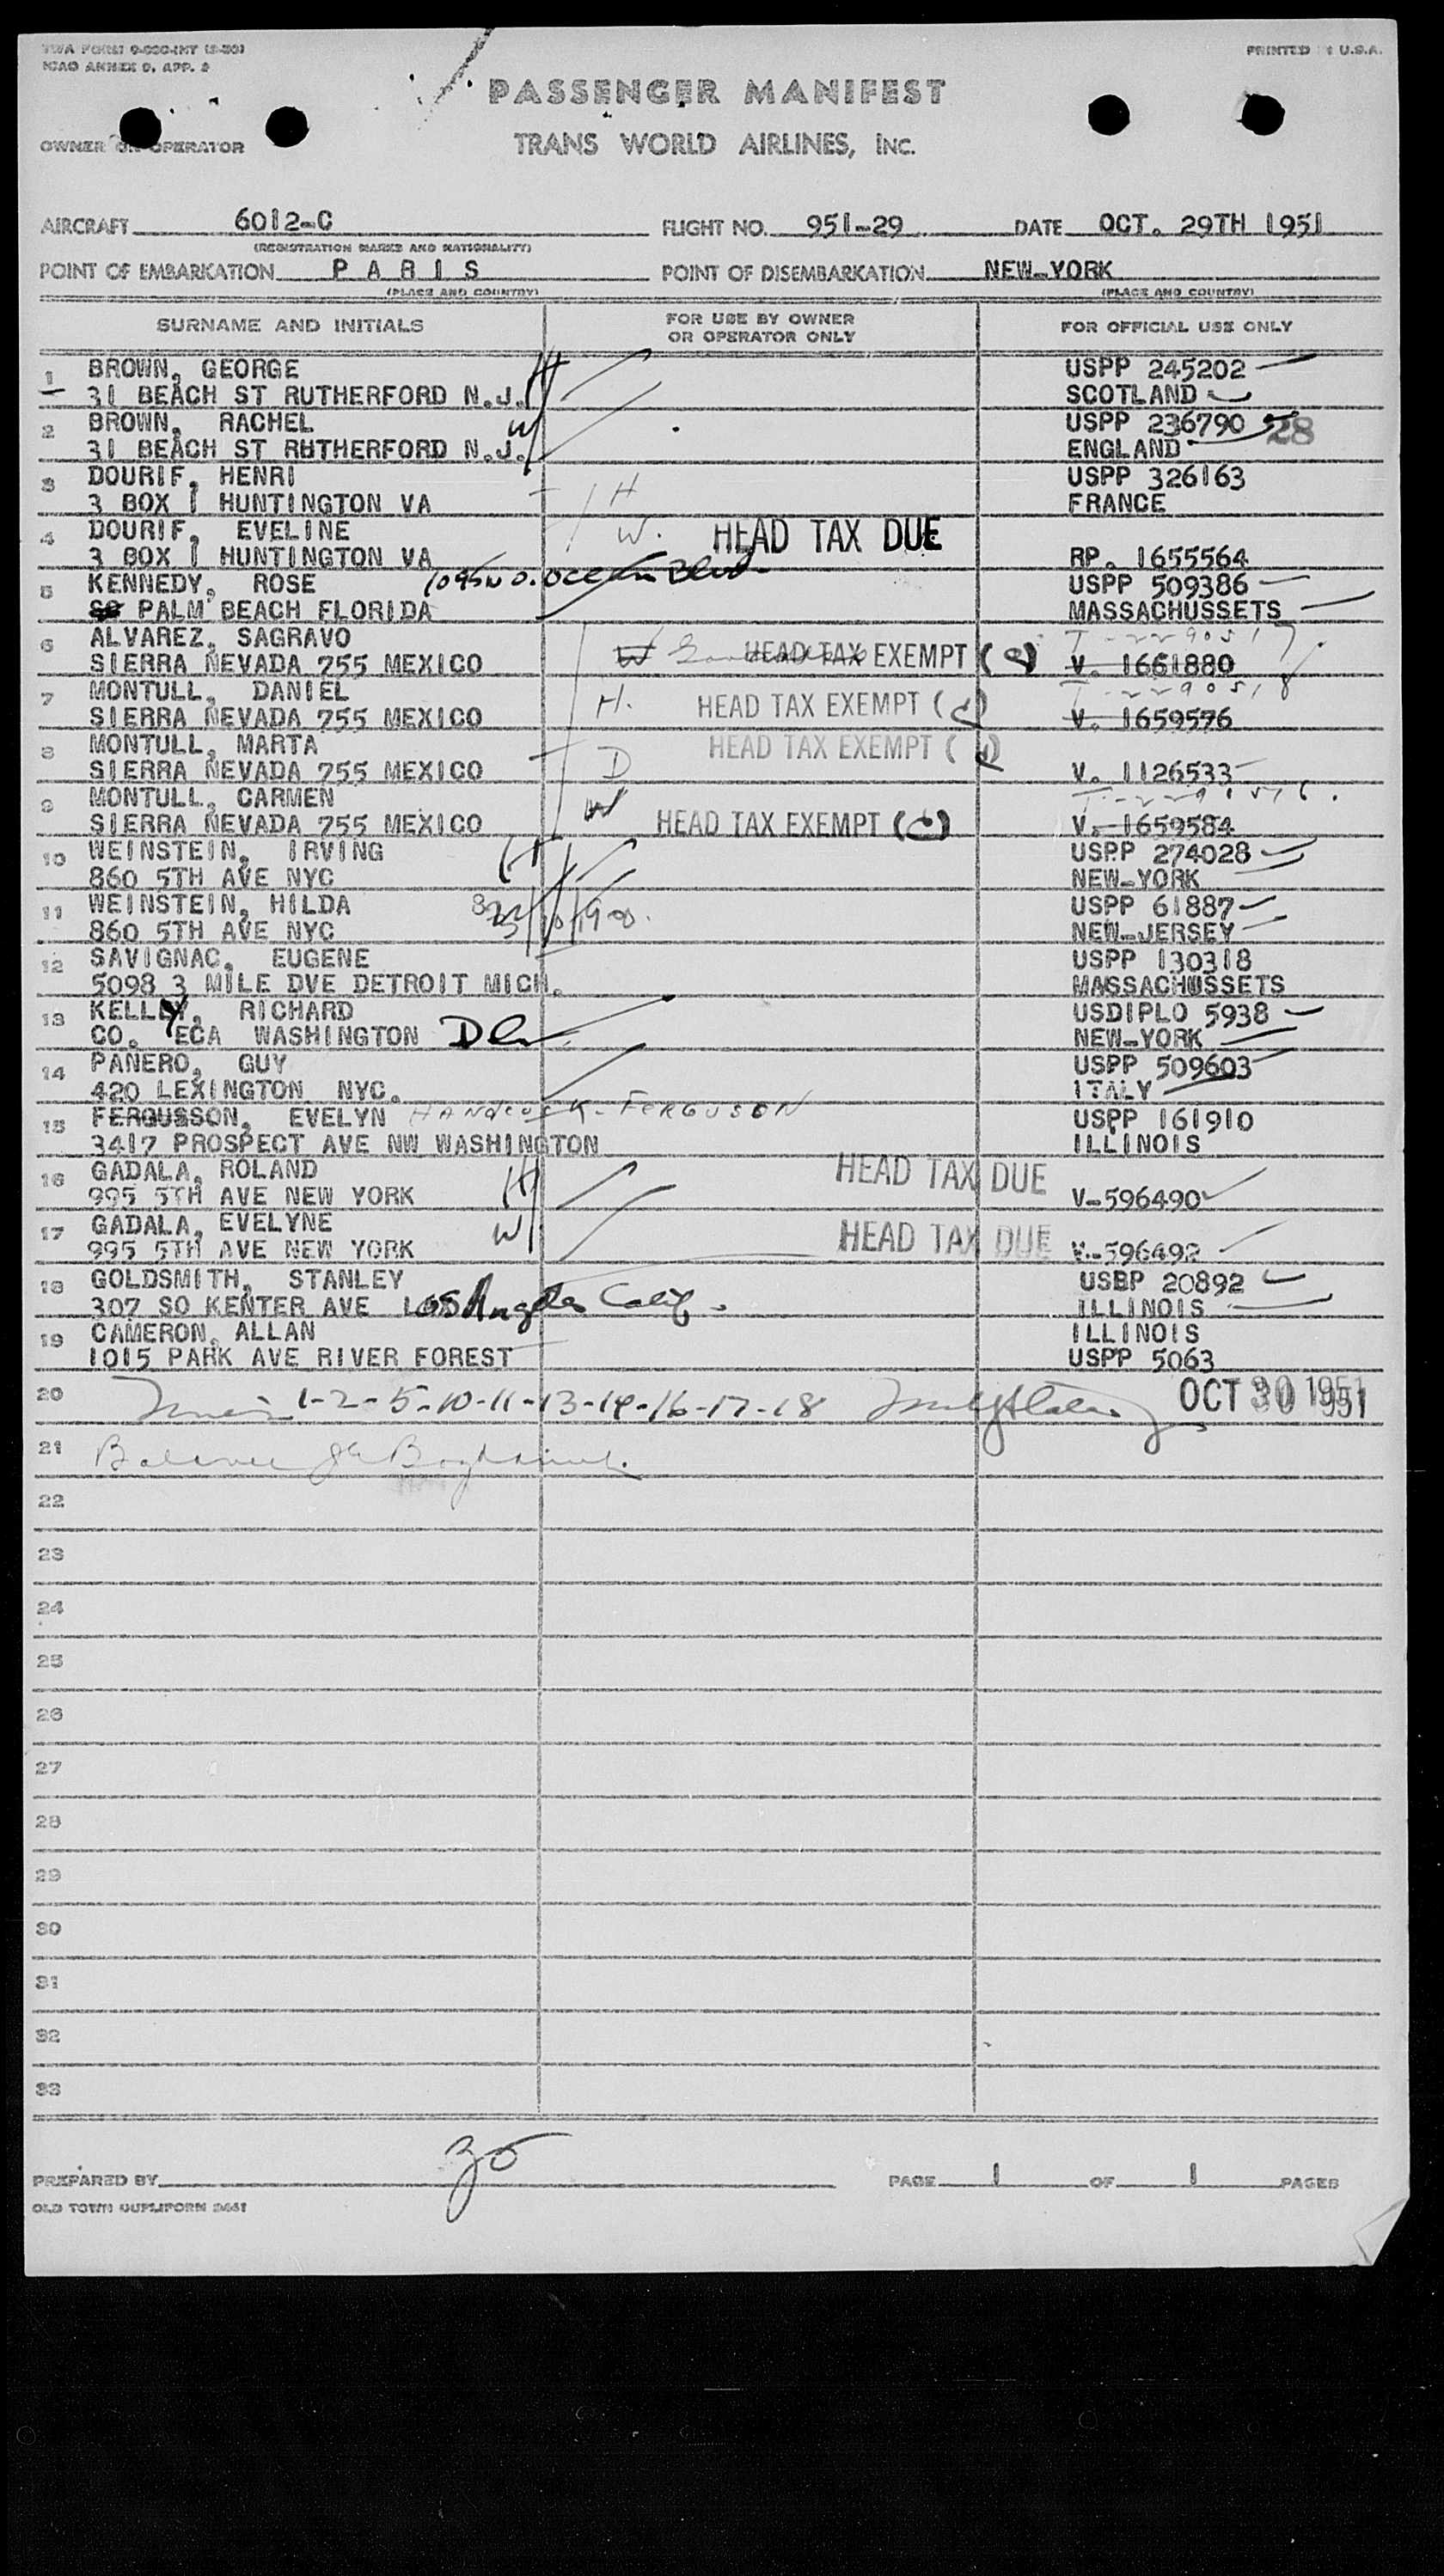 TWA FORM
ICAO ANNEX 9, APP. 2
PRINTED IN U.S.A.
PASSENGER MANIFEST
OWNER OR OPERATOR
TRANS WORLD AIRLINES, INC.
AIRCRAFT 6012-C FLIGHT NO. 951-29 DATE OCT. 29TH 1951
(REGISTRATION MARKS AND NATIONALITY)
POINT OF EMBARKATION PARIS POINT OF DISEMBARKATION NEW-YORK
(PLACE AND COUNTRY) (PLACE AND COUNTRY)
SURNAME AND INITIALS FOR USE BY OWNER OR OPERATOR ONLY FOR OFFICIAL USE ONLY
1 BROWN, GEORGE H USPP 245202
31 BEACH ST RUTHERFORD N.J. SCOTLAND
2 BROWN, RACHEL W USPP 236790 28
31 BEACH ST RUTHERFORD N.J. ENGLAND
3 DOURIF, HENRI H USPP 326163
3 BOX 1 HUNTINGTON VA FRANCE
4 DOURIF, EVELINE W. HEAD TAX DUE
3 BOX 1 HUNTINGTON VA RP. 1655564
5 KENNEDY, ROSE 1095 NO. Ocean Blvd USPP 509386
PALM BEACH FLORIDA MASSACHUSSETS
6 ALVAREZ, SAGRAVO W HEAD TAX EXEMPT T-2290517
SIERRA NEVADA 755 MEXICO V. 1661880
7 MONTULL, DANIEL H. HEAD TAX EXEMPT T-2290518
SIERRA NEVADA 755 MEXICO V. 1659576
8 MONTULL, MARTA D HEAD TAX EXEMPT
SIERRA NEVADA 755 MEXICO V. 1126533
9 MONTULL, CARMEN W HEAD TAX EXEMPT T-2290516.
SIERRA NEVADA 755 MEXICO V. 1659584
10 WEINSTEIN, IRVING H USPP 274028
860 5TH AVE NYC NEW-YORK
11 WEINSTEIN, HILDA USPP 61887
860 5TH AVE NYC NEW-JERSEY
12 SAVIGNAC, EUGENE USPP 130318
5098 3 MILE DVE DETROIT MICH. MASSACHUSSETS
13 KELLEY, RICHARD USDIPLO 5938
CO. ECA WASHINGTON NEW-YORK
14 PANERO, GUY USPP 509603
420 LEXINGTON NYC. ITALY
15 FERGUSSON, EVELYN HANDCOCK-FERGUSON USPP 161910
3417 PROSPECT AVE NW WASHINGTON ILLINOIS
16 GADALA, ROLAND H HEAD TAX DUE
995 5TH AVE NEW YORK V-596490
17 GADALA, EVELYNE W HEAD TAX DUE
995 5TH AVE NEW YORK V-596492
18 GOLDSMITH, STANLEY USBP 20892
307 SO KENTER AVE Los Angeles Calif. ILLINOIS
19 CAMERON, ALLAN ILLINOIS
1015 PARK AVE RIVER FOREST USPP 5063
20 1-2-5-10-11-13-14-16-17-18 OCT 30 1951
21 Balance
22
23
24
25
26
27
28
29
30
31
32
33
30
PREPARED BY PAGE 1 OF 1 PAGES
OLD TOWN DUPLIFORM